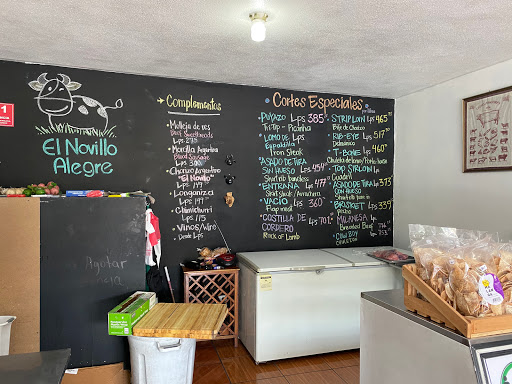 El Novillo
Alegre
1
Complementos
Molleja de res
Beef Sweetbreads
Lps 275
Morcilla Argentina
Blood Sausage
Lps 300
Chorizo Argentino
"El Novillo"
Lps 199
Longaniza
Lps 199
Chimichurri
Lps 195
Vinos/Wine
Desde Lps
Cortes Especiales
PUYAZO Lps 385
Tri-Tip - Picanha
LOMO DE Lps
Espaldilla
Iron Steak
ASADO DE TIRA
SIN HUESO Lps 454
Short rib boneless
ENTRAÑA Lps 477
Skirt Steak / Arrachera
VACÍO Lps 360
Flap meat
COSTILLA DE Lps 701
CORDERO
Rack of Lamb
STRIPLOIN Lps 465
Bife de Chorizo
RIB-EYE Lps 517
Delmonico
T-BONE Lps 460
TOP SIRLOIN Lps
ASADO DE TIRA 373
CON HUESO
Short rib bone in
BRISKET Lps 339
Pecho
MILANESA Lp
Breaded Beef
COW BOY
Agotar